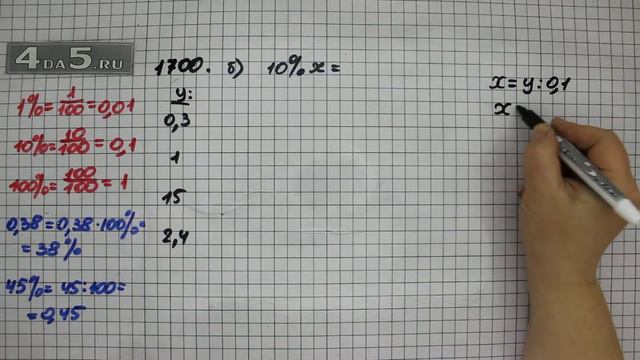 4DA5.RU
1700. б) 10% x =
y:
0,3
1
15
2,4
1% = 1/100 = 0,01
10% = 10/100 = 0,1
100% = 100/100 = 1
0,38 = 0,38 · 100% =
= 38%
45% = 45 : 100 =
= 0,45
x = y : 0,1
x